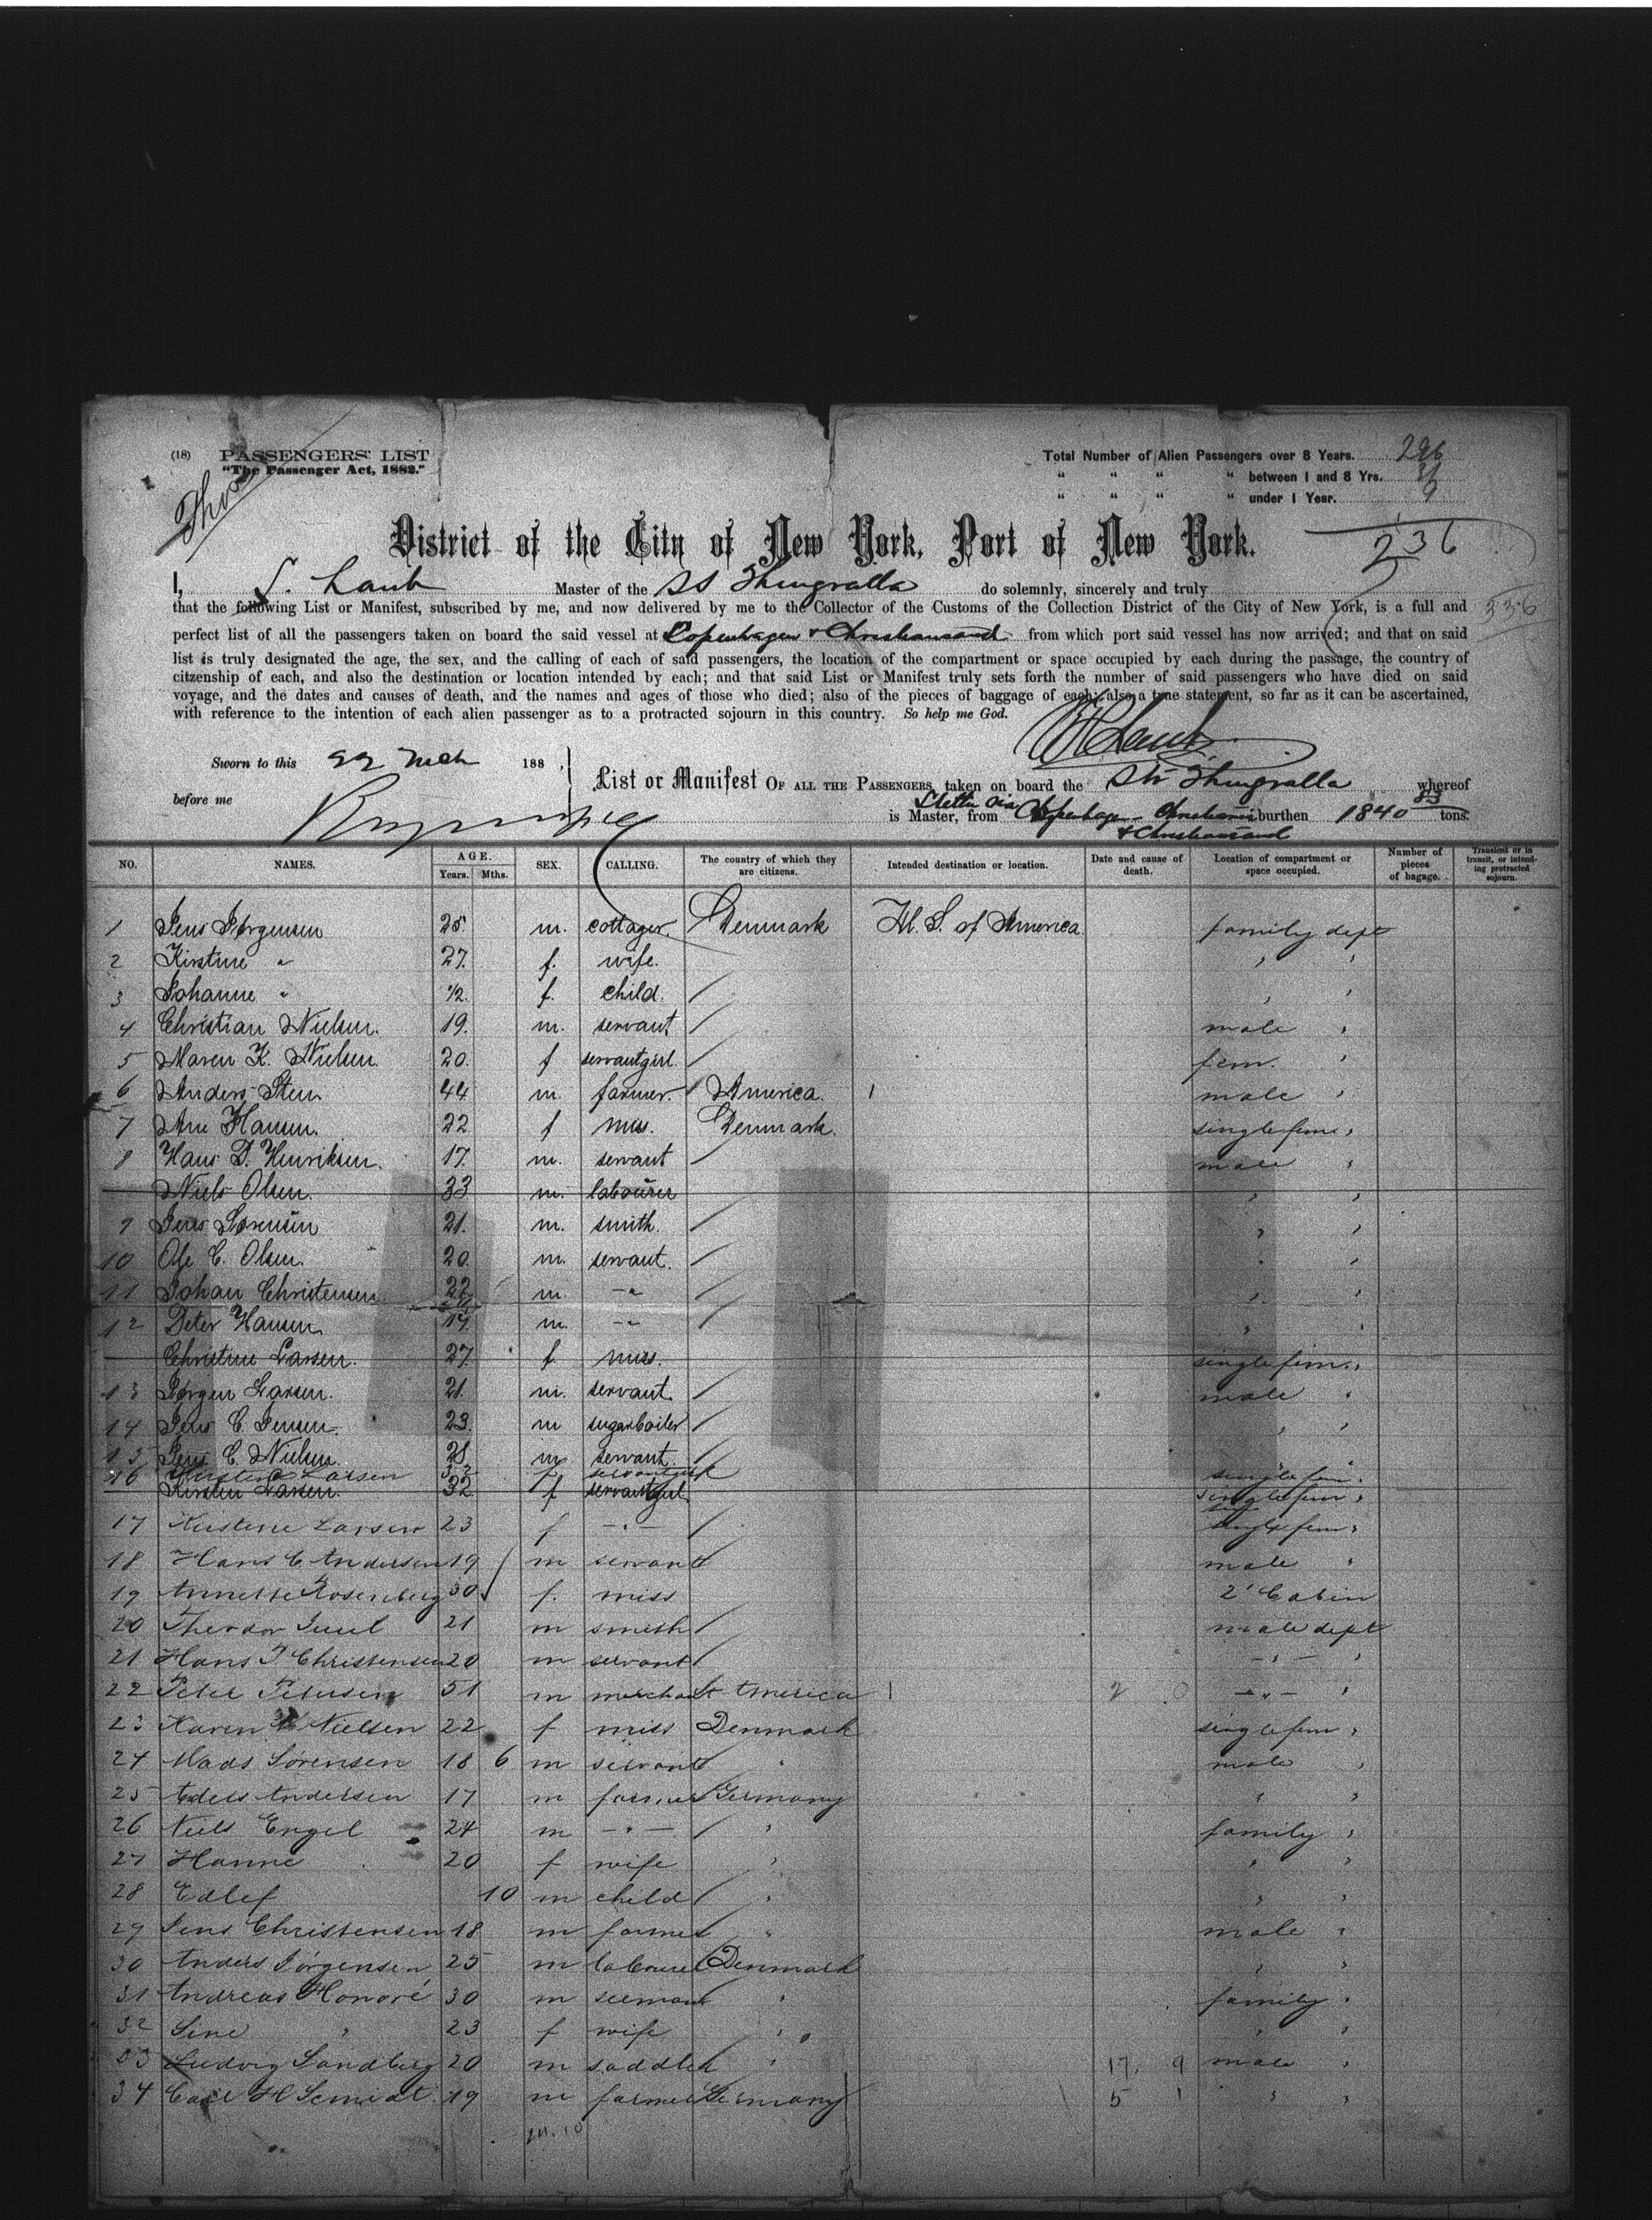 (18) PASSENGERS' LIST
"The Passenger Act, 1882."
Total Number of Alien Passengers over 8 Years. 296
" " " " between 1 and 8 Yrs. 31
" " " " under 1 Year. 9
District of the City of New York, Port of New York.
336
I, S. Laub Master of the SS Thingvalla do solemnly, sincerely and truly
that the following List or Manifest, subscribed by me, and now delivered by me to the Collector of the Customs of the Collection District of the City of New York, is a full and 336
perfect list of all the passengers taken on board the said vessel at Copenhagen & Christiansand from which port said vessel has now arrived; and that on said
list is truly designated the age, the sex, and the calling of each of said passengers, the location of the compartment or space occupied by each during the passage, the country of
citzenship of each, and also the destination or location intended by each; and that said List or Manifest truly sets forth the number of said passengers who have died on said
voyage, and the dates and causes of death, and the names and ages of those who died; also of the pieces of baggage of each; also a true statement, so far as it can be ascertained,
with reference to the intention of each alien passenger as to a protracted sojourn in this country. So help me God.
Laub
Sworn to this 22 Mch 188
before me
List or Manifest OF ALL THE PASSENGERS taken on board the Str Thingvalla whereof
is Master, from Stettin via Copenhagen Christiania & Christiansand burthen 1840 83 tons.
NO. NAMES. AGE. Years. Mths. SEX. CALLING. The country of which they are citizens. Intended destination or location. Date and cause of death. Location of compartment or space occupied. Number of pieces of bagage. Transient or in transit, or intending protracted sojourn.
1 Jens Jørgensen 25. m. cottager. Denmark U. S. of America family dept
2 Kirstine " 27. f. wife. " "
3 Johanne " 1/2. f. child. / " "
4 Christian Nielsen. 19. m. servant / male "
5 Maren K. Nielsen 20. f servantgirl. / fem. "
6 Anders Sten 44 m. farmer. America. male "
7 Ane Hansen. 22 f mis. Denmark. single fem "
8 Hans D. Henriksen. 17. m. servant / male "
Niels Olsen. 33 m. labourer " "
9 Jens Sørensen 21. m. smith. / " "
10 Ole C. Olsen. 20. m. servant. / " "
11 Johan Christensen 22. m. -"- / " "
12 Peter Hansen 17. m. -"- / " "
Christine Larsen. 27. f. miss. single fem. "
13 Jørgen Larsen. 21. m. servant. / male "
14 Jens C. Jensen. 23. m sugarboiler / " "
15 Jens C. Nielsen. 21. m servant. /
16 Kirstine Larsen 32 f servantgirl single fem.
Kirsten Larsen. 32 f servantgirl single fem "
17 Kirstine Larsen 23 f -"- / single fem "
18 Hans C Andersen 19 m servant / male "
19 Annette Rosenberg 30 f. miss 2' Cabin
20 Theodor Juul 21 m smith / male dept
21 Hans J. Christensen 20 m servant / -"- "
22 Peter Petersen 51 m merchant America -"- "
23 Karen Nielsen 22 f miss Denmark single fem "
24 Mads Sørensen 18 6 m servant / " male "
25 Edlef Andersen 17 m farmer Germany " "
26 Niels Engel 24 m -"- / " family "
27 Hanne 20 f wife " " "
28 Edlef 10 m child / " " "
29 Jens Christensen 18 m farmer " male "
30 Anders Jørgensen 25 m labourer Denmark " "
31 Andreas Honoré 30 m seeman " family "
32 Sine " 23 f wife " " "
33 Ludvig Sandberg 20 m saddler " 17. 9 male "
34 Carl H Scmidt 19 m farmer Germany 5 1 " "